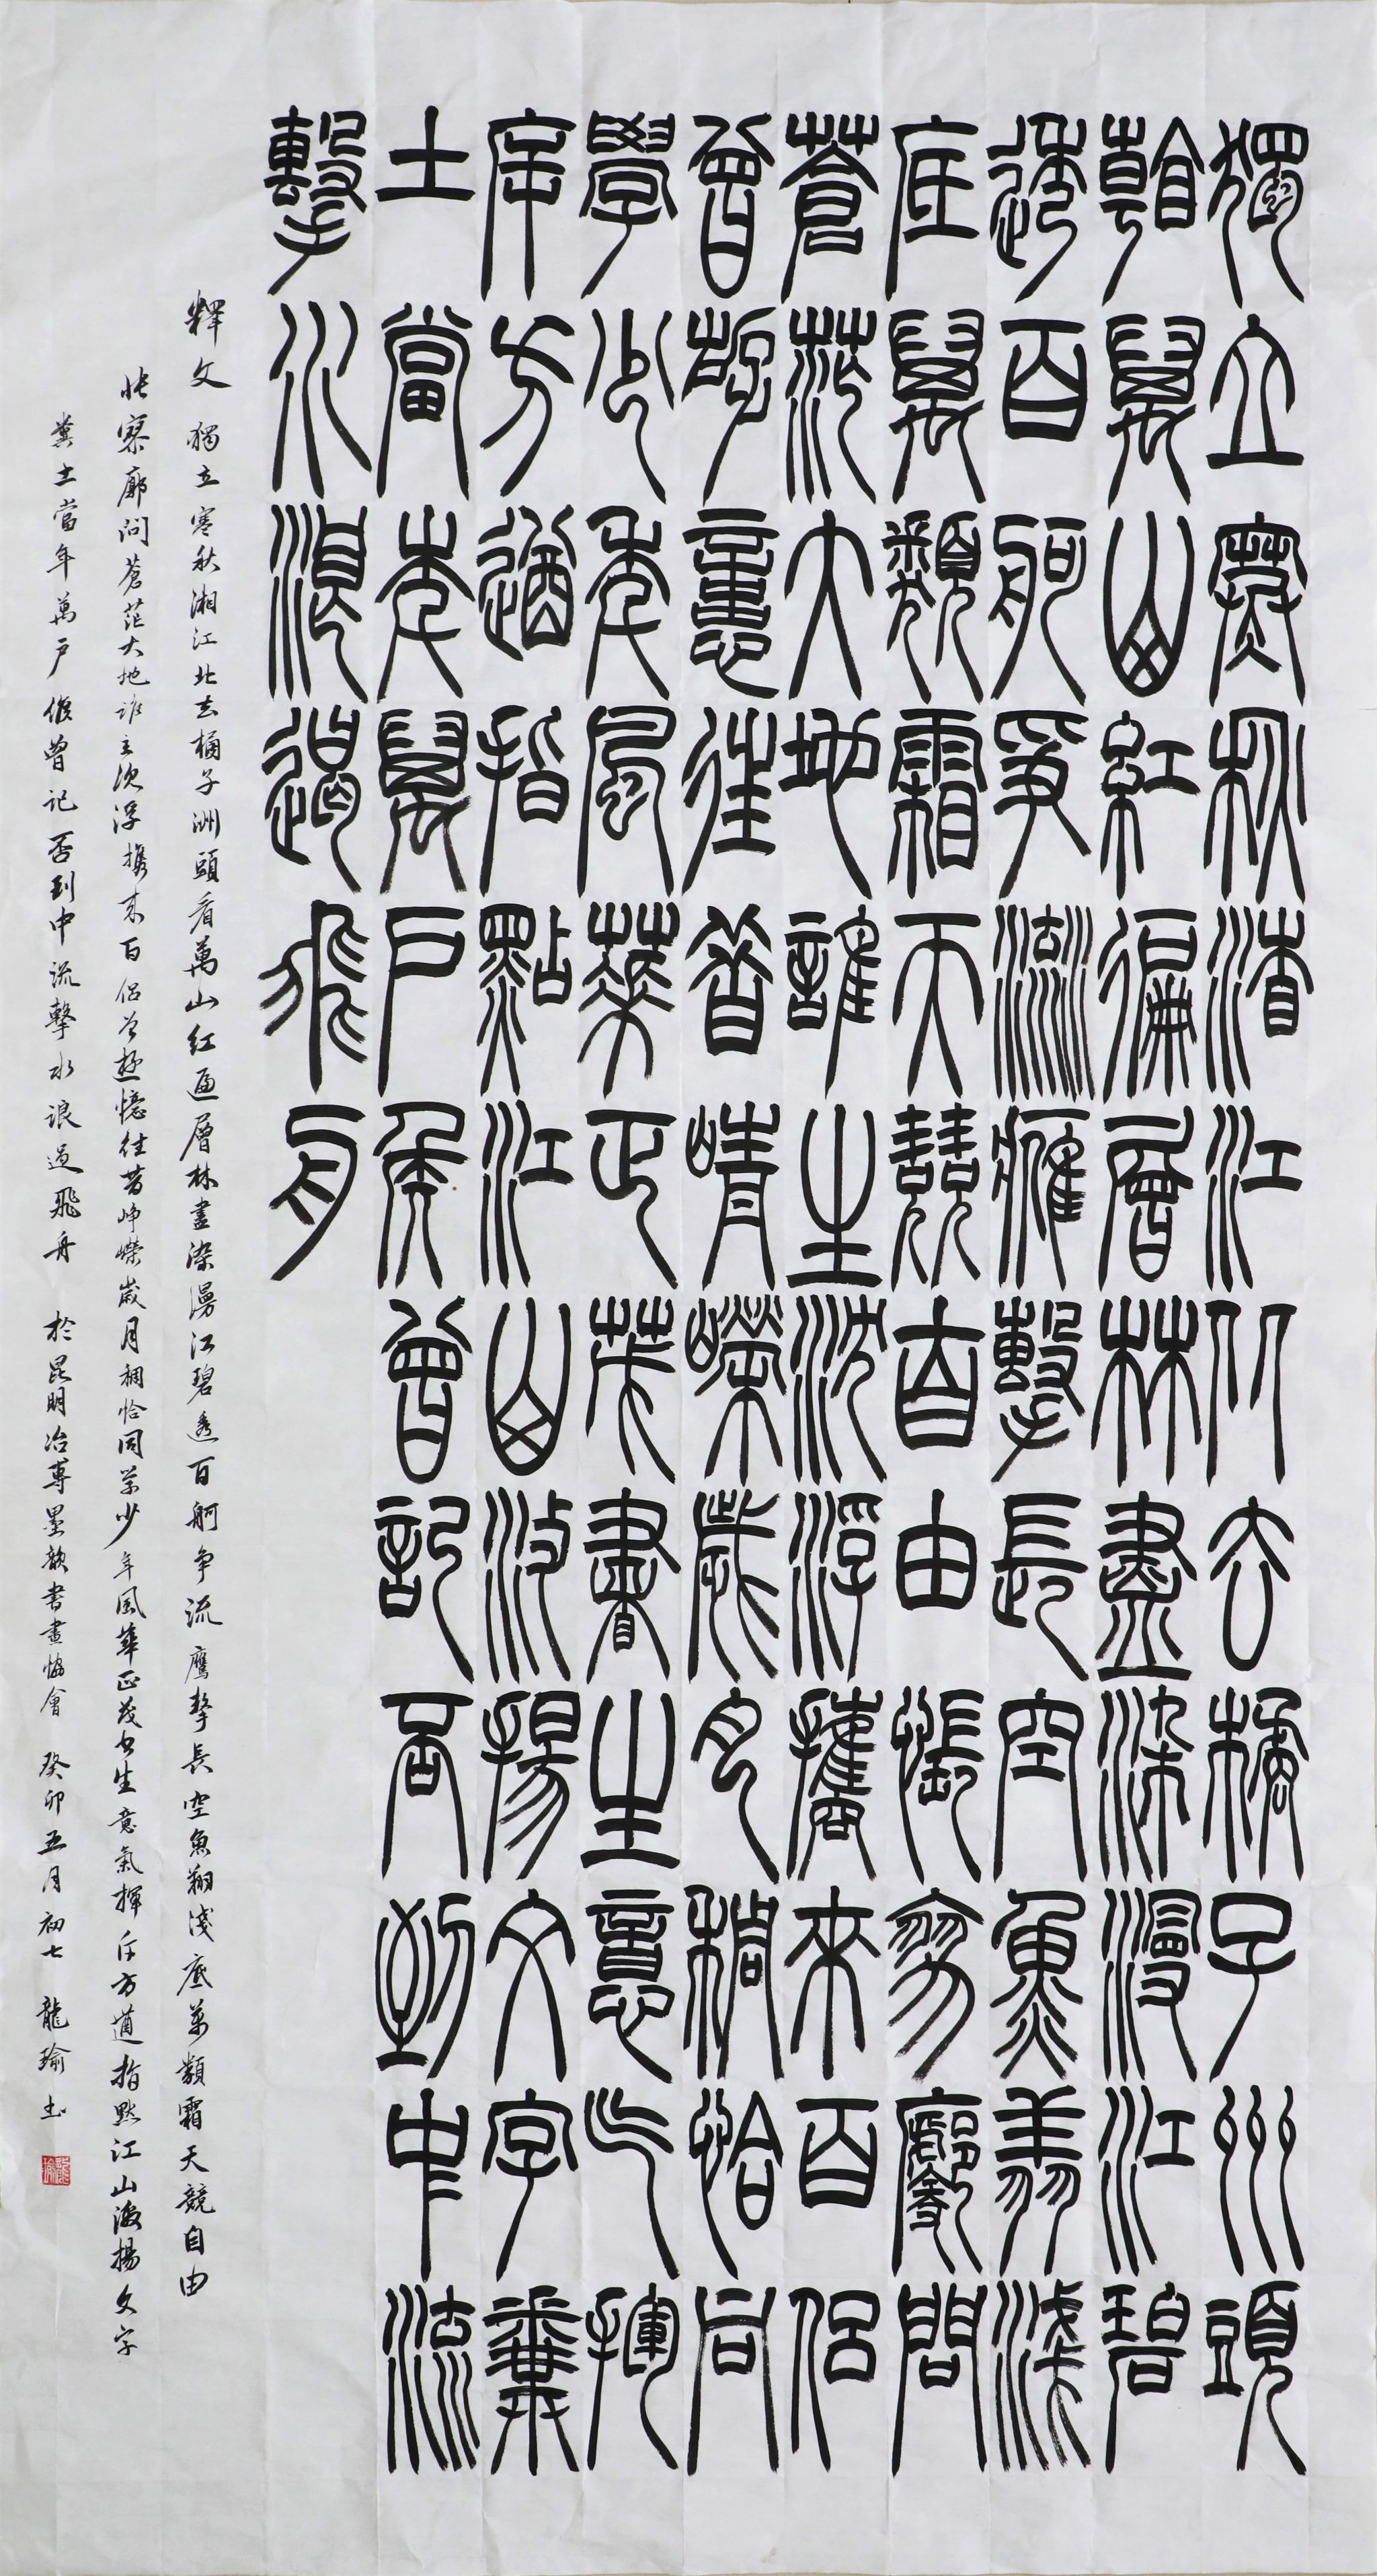 獨立寒秋湘江北去橘子洲頭
看萬山紅徧層林盡染漫江碧
透百舸爭流鷹擊長空魚翔淺
底萬類霜天競自由悵寥廓問
蒼茫大地誰主沈浮攜來百侣
曾游憶往昔崢嶸歲月稠恰同
學少年風華正茂書生意气揮
斥方遒指點江山激揚文字糞
土當年萬戶矦曾記否到中流
擊水浪遏飛舟
釋文 獨立寒秋湘江北去橘子洲頭看萬山紅遍層林盡染漫江碧透百舸争流鷹擊長空魚翔淺底萬類霜天競自由
悵寥廓問蒼茫大地誰主沉浮携來百侣曾遊憶往昔崢嶸歲月稠恰同学少年風華正茂书生意氣揮斥方遒指點江山激揚文字
糞土當年萬户侯曾記否到中流擊水浪遏飛舟 於昆明冶専墨韻書畫協會 癸卯五月初七 龍瑜书